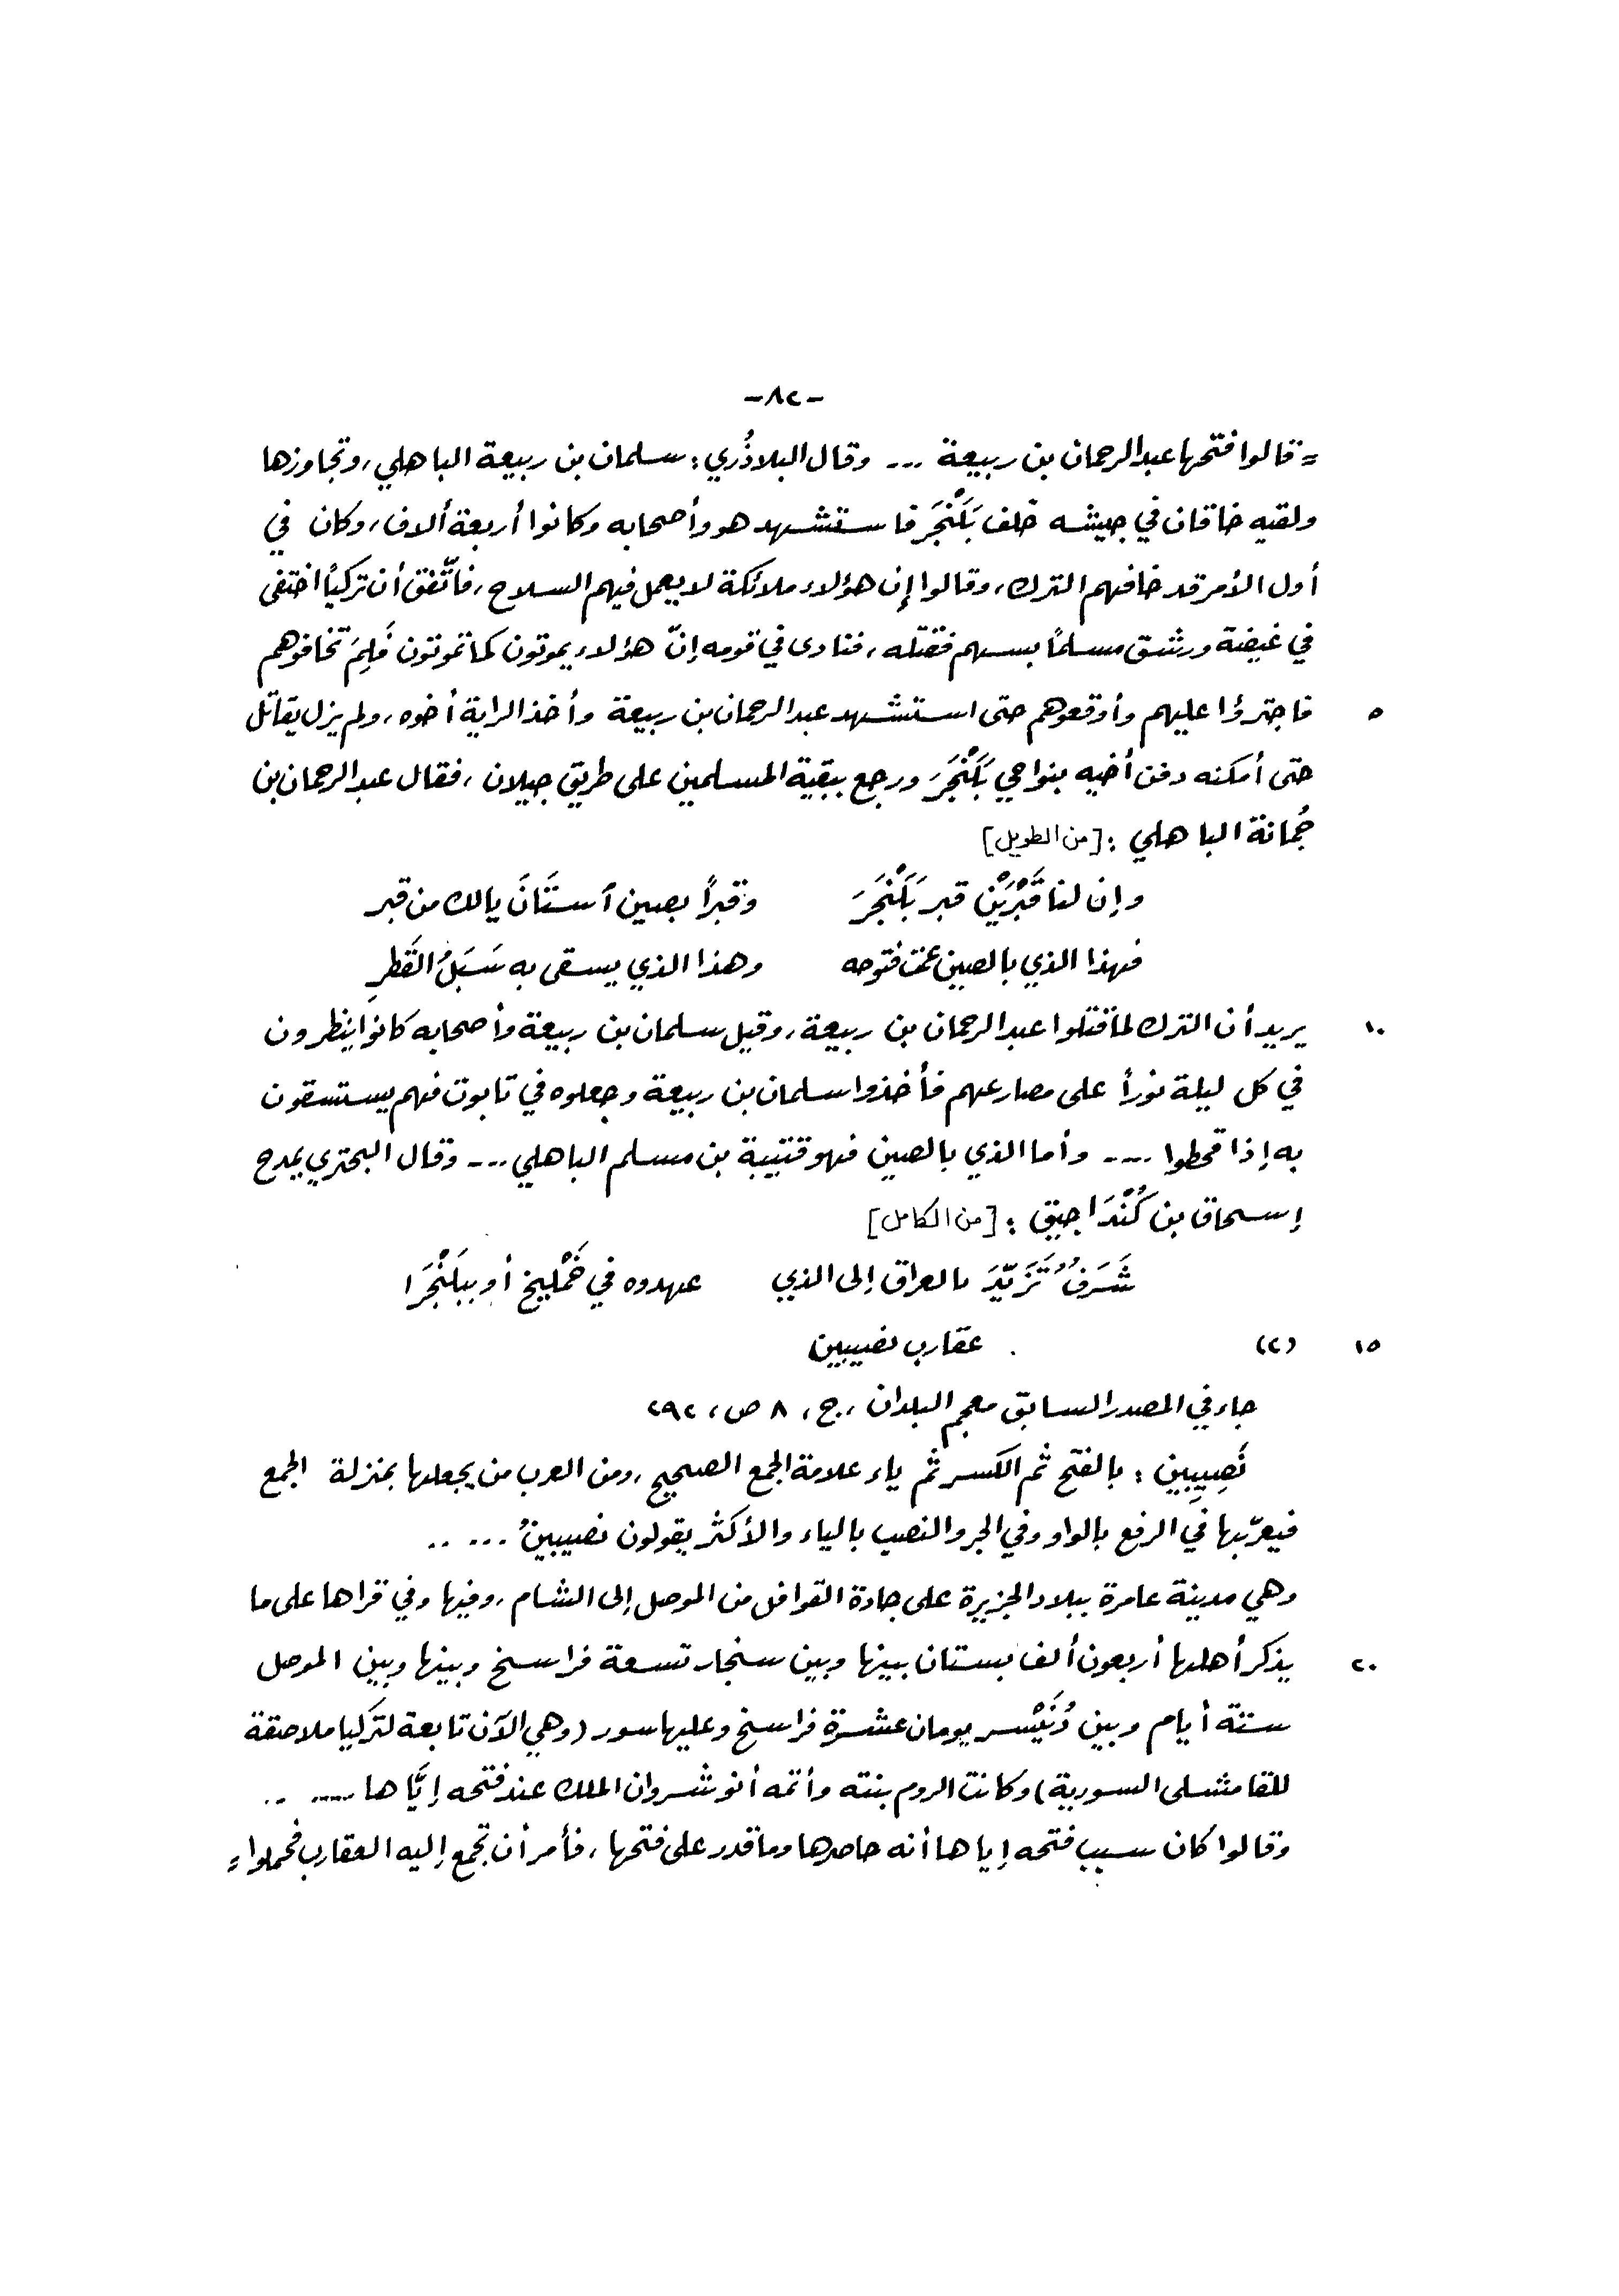 -٨٢-
= قالوا فتحها عبد الرحمان بن ربيعة ... وقال البلاذُري: سلمان بن ربيعة الباهلي، وتجاوزها
ولقيه خاقان في جيشه خلف بَلَنْجَرَ فاستشهد هو وأصحابه وكانوا أربعة ألاف، وكان في
أول الأمر قد خافهم الترك، وقالوا إن هؤلاء ملائكة لا يعمل فيهم السلاح، فاتّفق أن تركيًا اختفى
في غيضة ورشق مسلمًا بسهم فقتله، فنادى في قومه إنّ هؤلاء يموتون كما تموتون فَلِمَ تخافوهم
٥ فاجترؤا عليهم وأوقعوهم حتى استشهد عبد الرحمان بن ربيعة وأخذ الراية أخوه، ولم يزل يقاتل
حتى أمكنه دفن أخيه بنواحي بَلَنْجَرَ ورجع ببقية المسلمين على طريق جيلان، فقال عبد الرحمان بن
جُمانة الباهلي: [من الطويل]
وإن لنا قَبْرَيْن قبر بَلَنْجَرَ وقبرًا بصين آستَانَ يالك من قبر
فهذا الذي بالصين عمّت فتوحه وهذا الذي يسقى به سَبَلُ القَطرِ
١٠ يريد أن الترك لما قتلوا عبد الرحمان بن ربيعة، وقيل سلمان بن ربيعة وأصحابه كانوا ينظرون
في كل ليلة نورًا على مصارعهم فأخذوا سلمان بن ربيعة وجعلوه في تابوت فهم يستسقون
به إذا قحطوا .... وأما الذي بالصين فهو قتيبة بن مسلم الباهلي ... وقال البحتري يمدح
إسحاق بن كُنْدَاجيق: [من الكامل]
شَرَفٌ تَزَيّدَ بالعراق إلى الذي عهدوه في خَمْليخ أو ببَلَنْجَرا
١٥ (٢) عقارب نصيبين
جاء في المصدر السابق معجم البلدان، ج، ٨ ص، ٢٩٢
نَصِيبِين: بالفتح ثم الكسر ثم ياء علامة الجمع الصحيح، ومن العرب من يجعلها بمنزلة الجمع
فيعرّبها في الرفع بالواو وفي الجر والنصب بالياء والأكثر يقولون نصيبينُ ... ..
وهي مدينة عامرة ببلاد الجزيرة على جادة القوافل من الموصل إلى الشام، وفيها وفي قراها على ما
٢٠ يذكر أهلها أربعون ألف بستان بينها وبين سنجار تسعة فراسخ وبينها وبين الموصل
ستة أيام وبين دُنَيْسر يومان عشرة فراسخ وعليها سور (وهي الآن تابعة لتركيا ملاصقة
للقامشلى السورية) وكانت الروم بنته وأتمه أنوشروان الملك عند فتحه إيَّاها .... ..
وقالوا كان سبب فتحه إياها أنه حاصرها وما قدر على فتحها، فأمر أن تجمع إليه العقارب فحملوا =